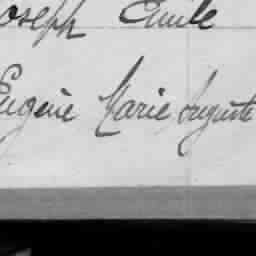 Joseph Emile
Eugène Marie Auguste